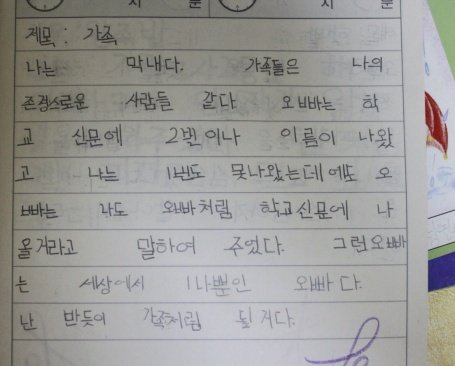 시 분 시 분
제목 : 가족
나는 막내다. 가족들은 나의
존경스로운 사람들 같다 오빠는 학
교 신문에 2번이나 이름이 나왔
고 나는 1번도 못나왔는데에도 오
빠는 나도 오빠처럼 학교신문에 나
올거라고 말하여 주었다. 그런오빠
는 세상에서 1나뿐인 오빠다.
난 반듯이 가족처럼 될거다.